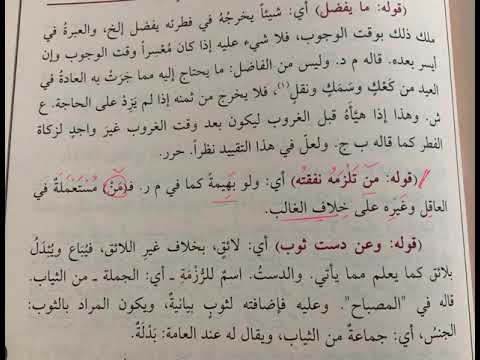 (قوله: ما يفضل) أي: شيئاً يخرجُهُ في فطرته يفضل إلخ، والعبرةُ في
ملك ذلك بوقت الوجوب، فلا شيء عليه إذا كان مُعْسِراً وقت الوجوب وإن
أيسر بعده. قاله م د. وليس من الفاضل: ما يحتاج إليه مما جَرَتْ به العادةُ في
العيد من كَعْكٍ وسَمَكٍ ونقلٍ(١)، فلا يخرج من ثمنه إذا لم يَزِدْ على الحاجة. ع
ش. وهذا إذا هيَّأَهُ قبل الغروب ليكون بعد وقت الغروب غيرَ واجدٍ لزكاة
الفطر كما قاله ب ج. ولعلّ في هذا التقييد نظراً. حرر.
(قوله: مَن تَلْزمُه نفقتُه) أي: ولو بَهِيمةً كما في م ر. فـ(مَنْ) مُسْتَعمَلةٌ في
العاقِلِ وغَيرِه على خِلاف الغالب.
(قوله: وعن دست ثوب) أي: لائقٍ، بخلاف غيرِ اللائق، فيُباع ويُبْدَلُ
بلائق كما يعلم مما يأتي. والدستُ. اسمٌ للرُّزْمَةِ ـ أي: الجملة ـ من الثياب.
قاله في "المصباح". وعليه فإضافته لثوبٍ بيانيةٌ، ويكون المراد بالثوب:
الجنسُ، أي: جماعةٌ من الثياب، ويقال له عند العامة: بَدْلَةٌ.